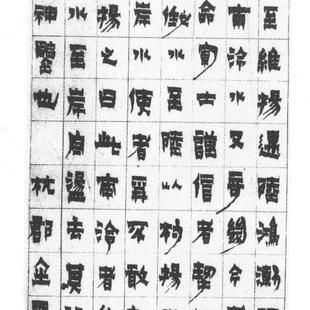 至維揚遇陸鴻漸
南泠水又絕今
命軍士謹信者挈
水至陸以杓揚
岸水使者不敢
揚之曰此南泠者
至岸盪去莫
神鑒也杭郡金